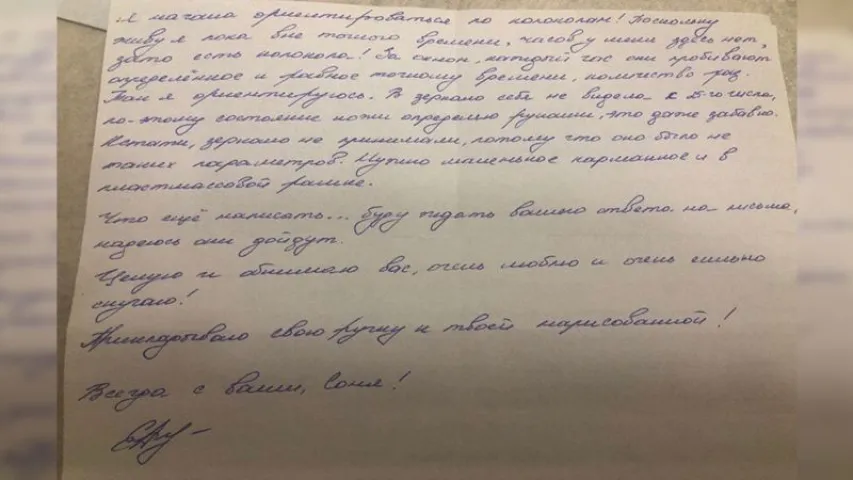 Я начала ориентироваться по колоколам! Поскольку
живу я пока вне точного времени, часов у меня здесь нет,
зато есть колокола! За окном, каждый час они пробивают
определённое и равное точному времени, количество раз.
Так я ориентируюсь. В зеркало себя не видела с числа,
по-этому состояние кожи определяю руками, это даже забавно.
Кстати, зеркало не принимали, потому что оно было не
таких параметров. Нужно маленькое карманное и в
пластмассовой рамке.
Что ещё написать... буду ждать вашего ответа на письма,
надеюсь они дойдут.
Целую и обнимаю вас, очень люблю и очень сильно
скучаю!
Прикладываю свою ручку к твоей нарисованной!
Всегда с вами, Соня!